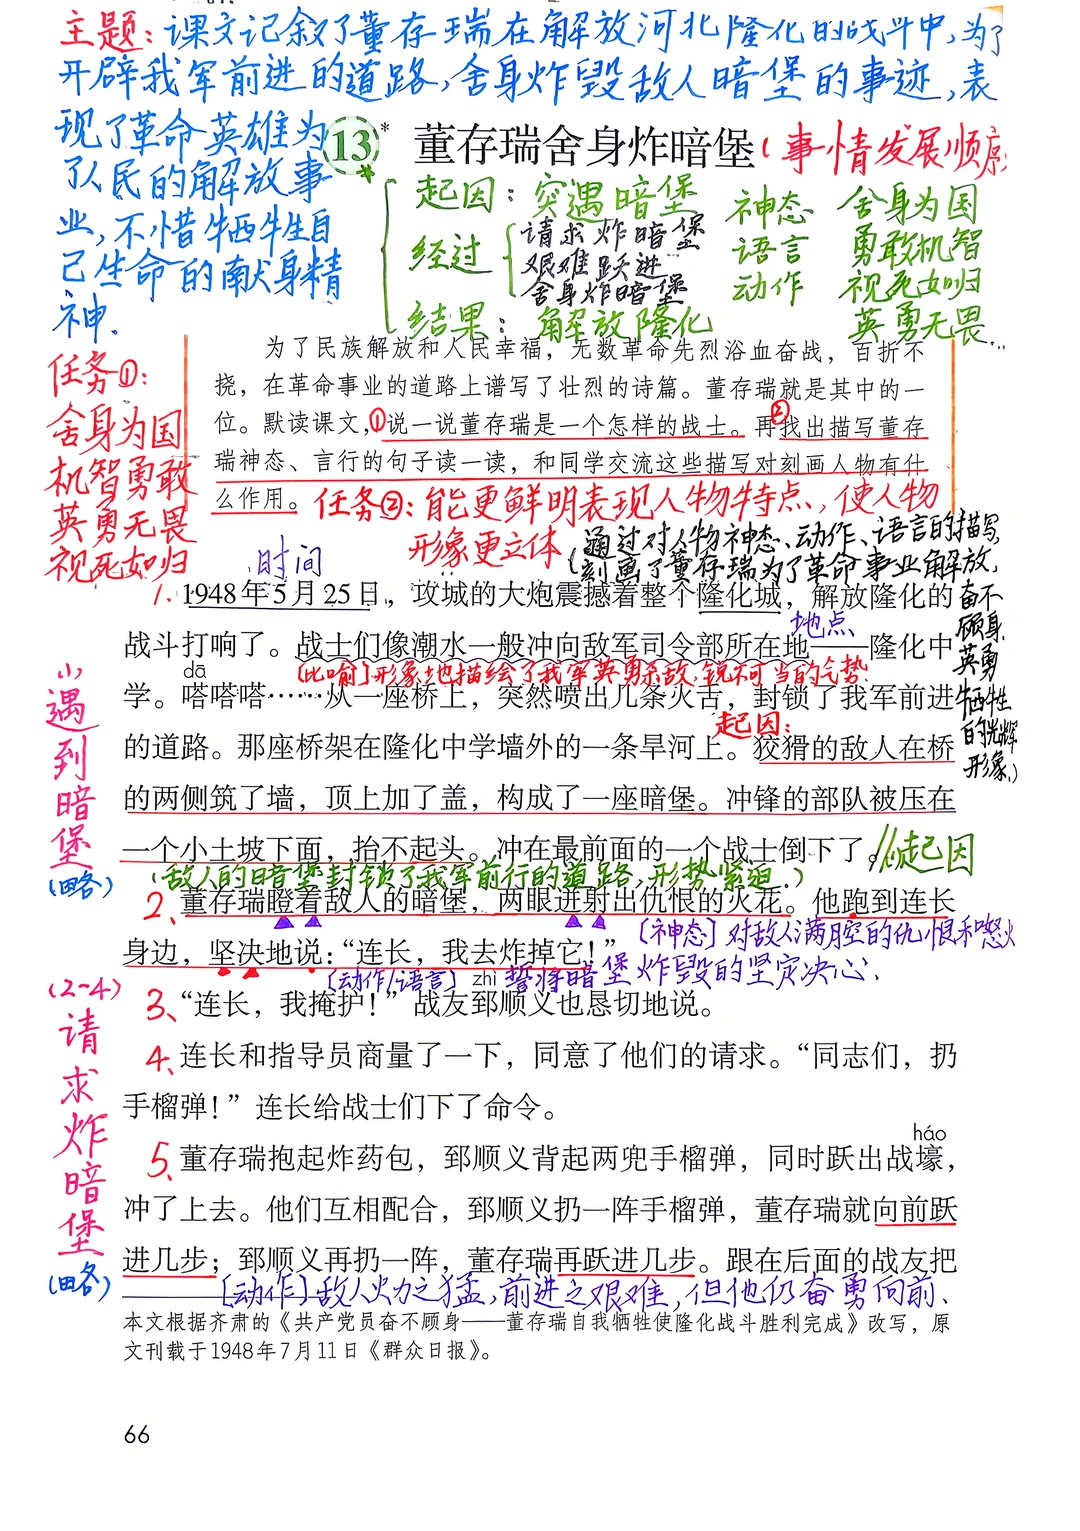 主题:课文记叙了董存瑞在解放河北隆化的战斗中,为了
开辟我军前进的道路,舍身炸毁敌人暗堡的事迹,表
现了革命英雄为
了人民的解放事
业,不惜牺牲自
己生命的献身精
神.
13* 董存瑞舍身炸暗堡(事情发展顺序
起因:突遇暗堡
经过
请求炸暗堡
艰难跃进
舍身炸暗堡
结果:解放隆化
神态
语言
动作
舍身为国
勇敢机智
视死如归
英勇无畏
为了民族解放和人民幸福,无数革命先烈浴血奋战,百折不
挠,在革命事业的道路上谱写了壮烈的诗篇。董存瑞就是其中的一
位。默读课文,①说一说董存瑞是一个怎样的战士。再②找出描写董存
瑞神态、言行的句子读一读,和同学交流这些描写对刻画人物有什
么作用。任务②:能更鲜明表现人物特点,使人物
形象更立体
任务①:
舍身为国
机智勇敢
英勇无畏
视死如归
(通过对人物神态、动作、语言的描写,
刻画了董存瑞为了革命事业解放,
奋不
顾身
英勇
牺牲
的光辉
形象.)
时间
1.1948年5月25日,攻城的大炮震撼着整个隆化城,解放隆化的
地点
战斗打响了。战士们像潮水一般冲向敌军司令部所在地——隆化中
dā
[比喻]形象地描绘了我军英勇杀敌,锐不可当的气势
学。嗒嗒嗒……从一座桥上,突然喷出几条火舌,封锁了我军前进
起因:
的道路。那座桥架在隆化中学墙外的一条旱河上。狡猾的敌人在桥
的两侧筑了墙,顶上加了盖,构成了一座暗堡。冲锋的部队被压在
一个小土坡下面,抬不起头。冲在最前面的一个战士倒下了。//起因
(敌人的暗堡封锁了我军前行的道路,形势紧迫.)
遇到暗堡
(略)
2、董存瑞瞪着敌人的暗堡,两眼迸射出仇恨的火花。他跑到连长
身边,坚决地说:“连长,我去炸掉它!”
[神态]对敌人满腔的仇恨和怒火
[动作/语言] zhì 誓将暗堡炸毁的坚定决心.
3、“连长,我掩护!”战友郅顺义也恳切地说。
(2~4)
请求炸暗堡
(略)
4、连长和指导员商量了一下,同意了他们的请求。“同志们,扔
手榴弹!”连长给战士们下了命令。
háo
5、董存瑞抱起炸药包,郅顺义背起两兜手榴弹,同时跃出战壕,
冲了上去。他们互相配合,郅顺义扔一阵手榴弹,董存瑞就向前跃
进几步;郅顺义再扔一阵,董存瑞再跃进几步。跟在后面的战友把
[动作]敌人火力之猛,前进之艰难,但他仍奋勇向前、
本文根据齐肃的《共产党员奋不顾身——董存瑞自我牺牲使隆化战斗胜利完成》改写,原
文刊载于1948年7月11日《群众日报》。
66